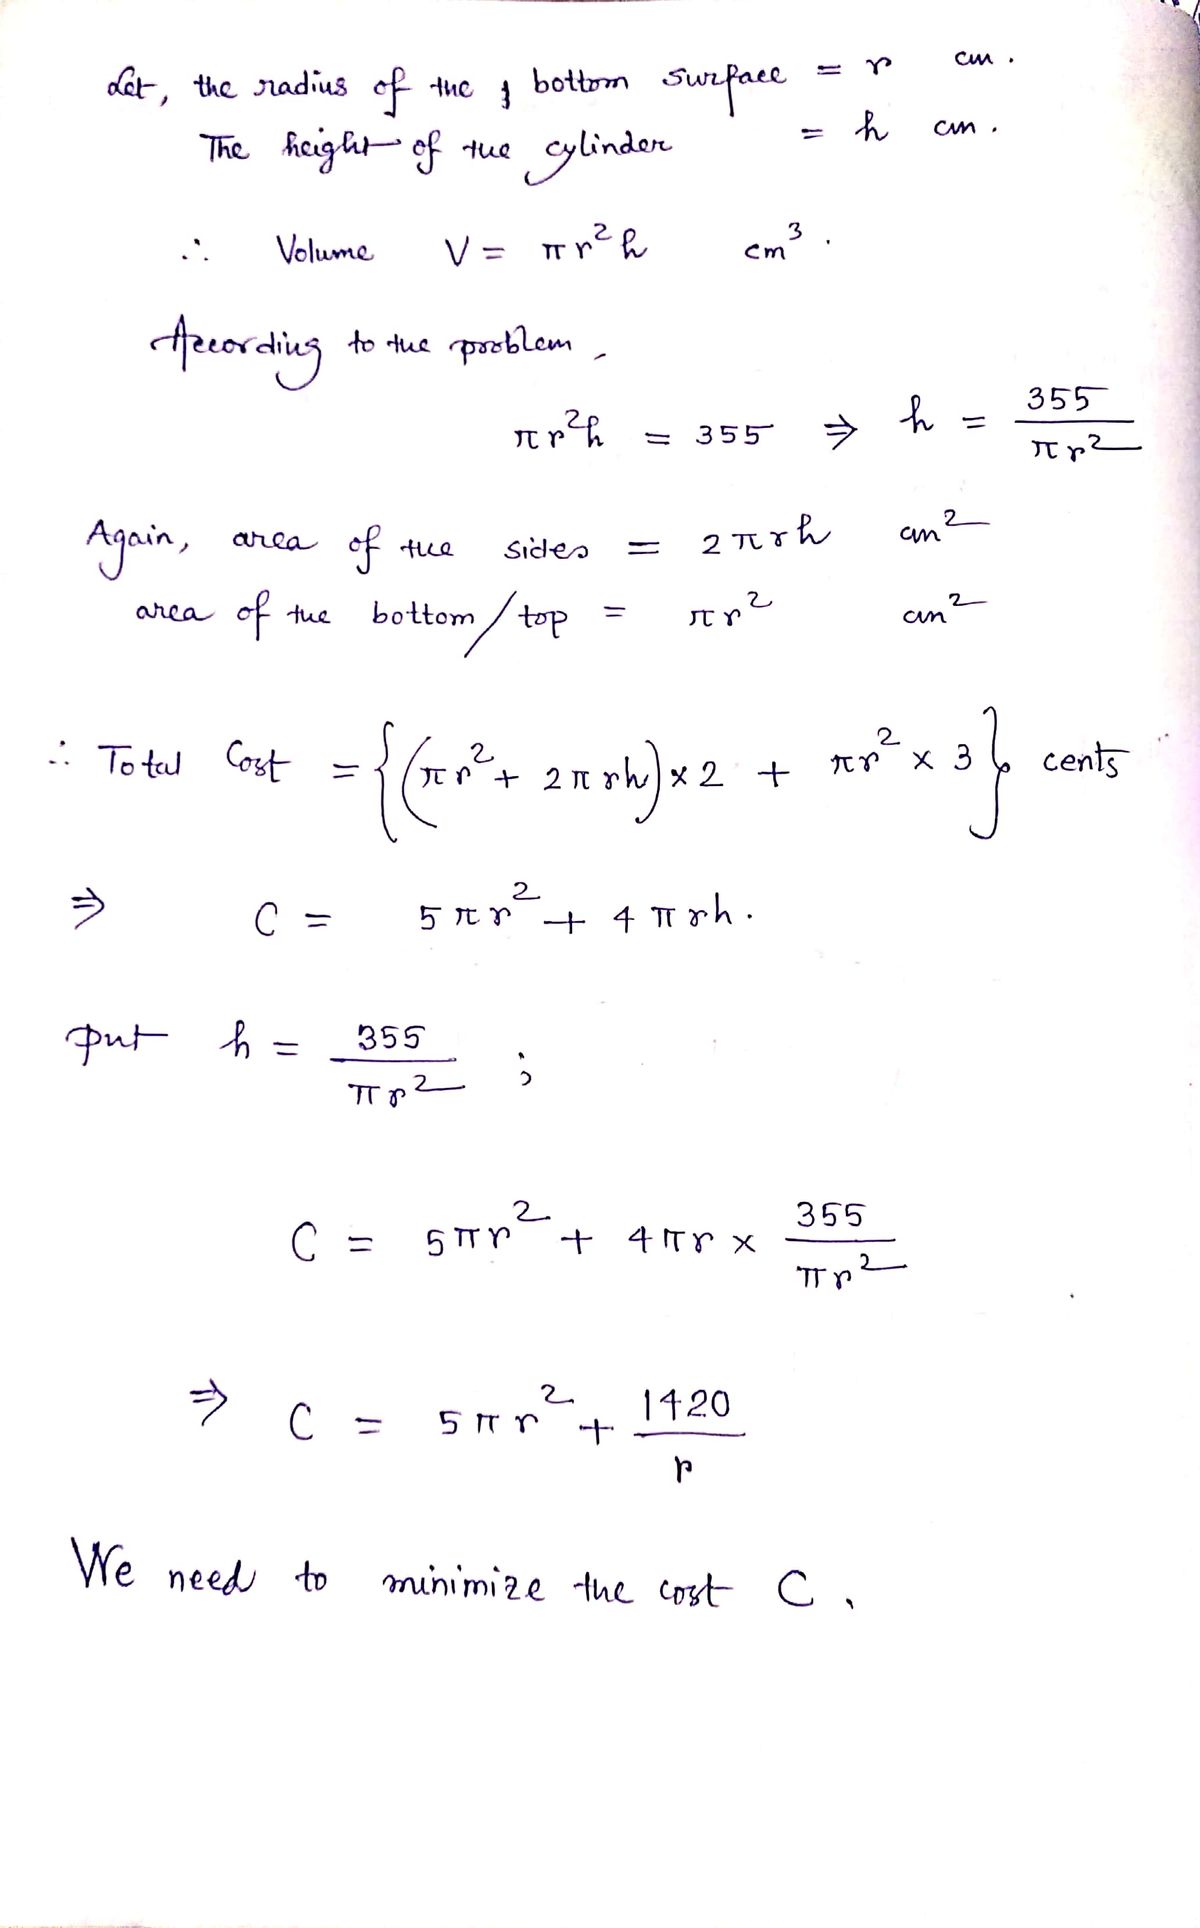 Let, the radius of the bottom surface = r cm.
The height of the cylinder = h cm.
∴ Volume V = πr²h cm³.
According to the problem,
πr²h = 355 ⇒ h = 355/πr²
Again, area of the sides = 2πrh cm²
area of the bottom/top = πr² cm²
∴ Total Cost = {(πr² + 2πrh)×2 + πr² × 3} cents
⇒ C = 5πr² + 4πrh.
Put h = 355/πr² ;
C = 5πr² + 4πr × 355/πr²
⇒ C = 5πr² + 1420/r
We need to minimize the cost C.